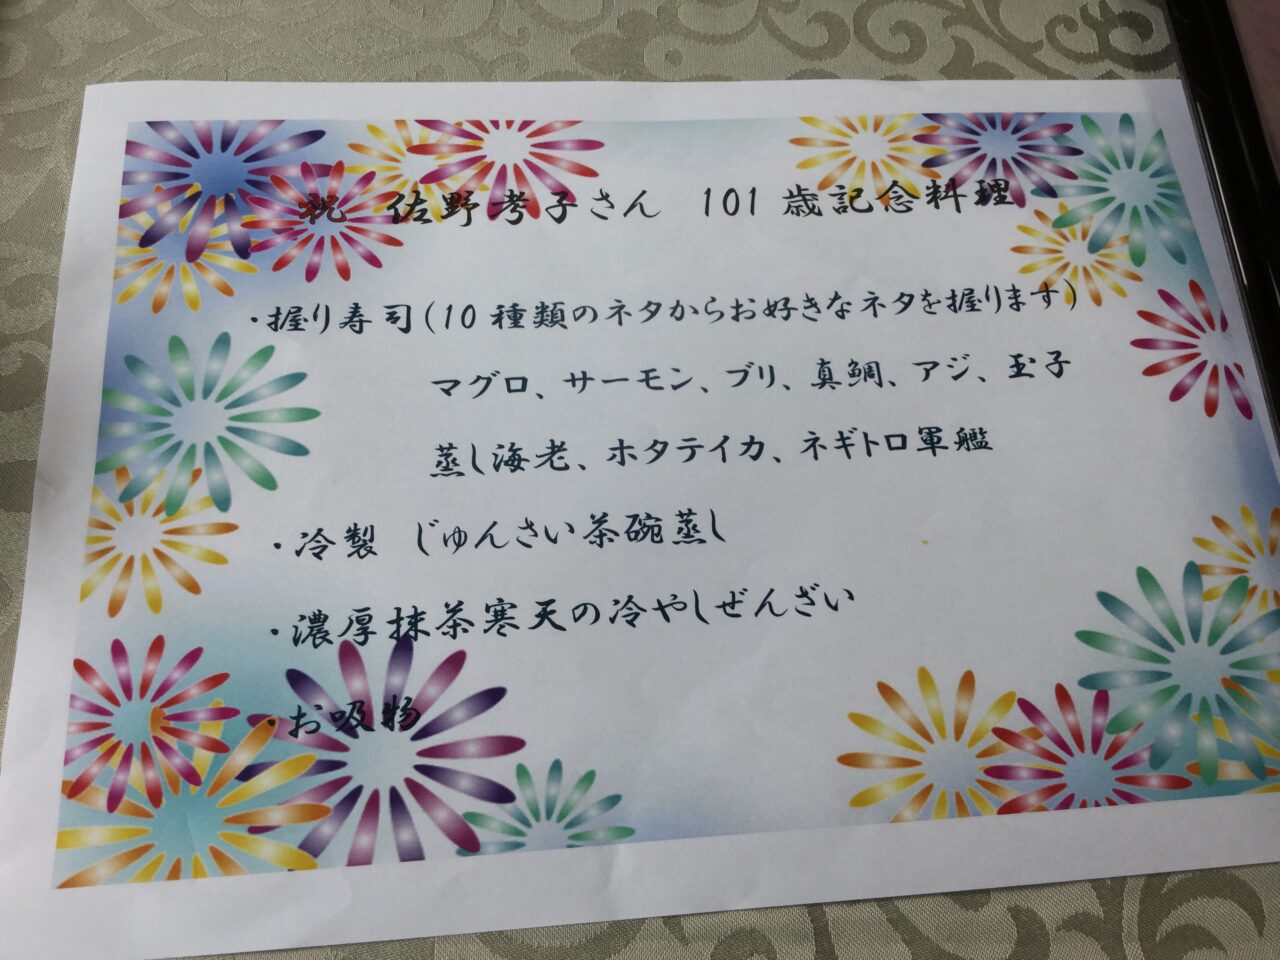 祝 佐野考子さん 101歳記念料理
・握り寿司(10種類のネタからお好きなネタを握ります)
マグロ、サーモン、ブリ、真鯛、アジ、玉子
蒸し海老、ホタテイカ、ネギトロ軍艦
・冷製 じゅんさい茶碗蒸し
・濃厚抹茶寒天の冷やしぜんざい
・お吸物